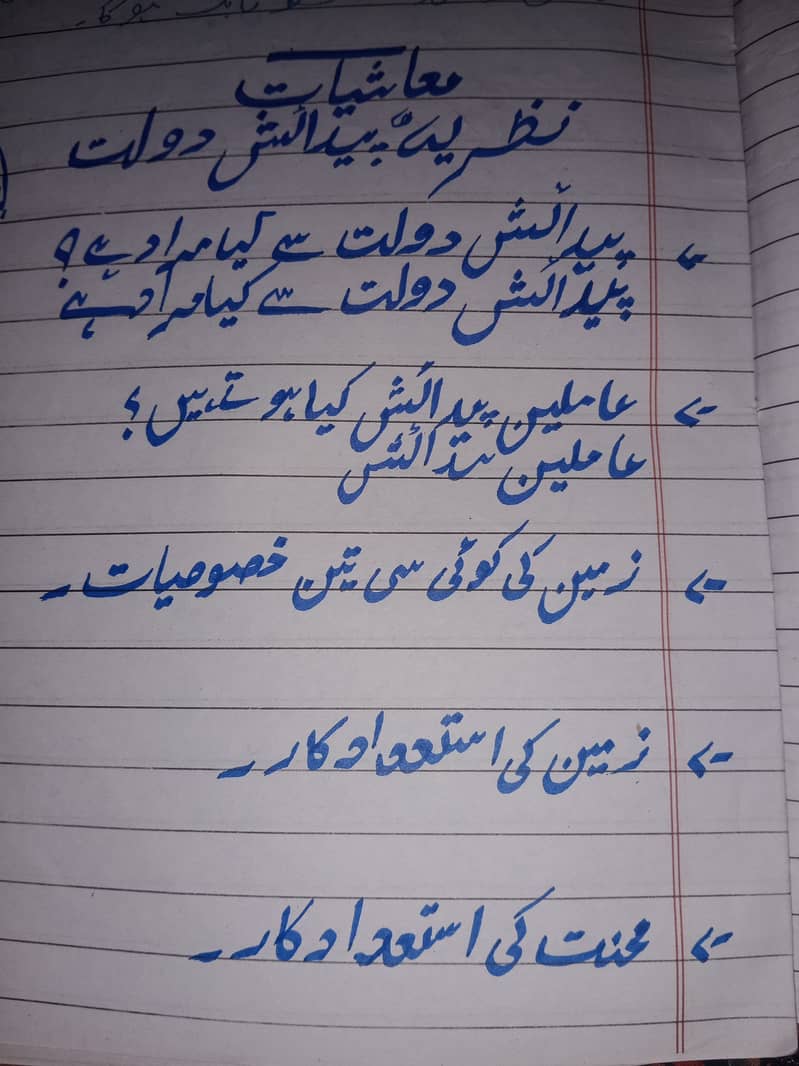 معاشیات
نظریہ پیدائش دولت
پیدائش دولت سے کیا مراد ہے؟
پیدائش دولت سے کیا مراد ہے
عاملین پیدائش کیا ہوتے ہیں؟
عاملین پیدائش
زمین کی کوئی سی تین خصوصیات۔
زمین کی استعداد کار۔
محنت کی استعداد کار۔